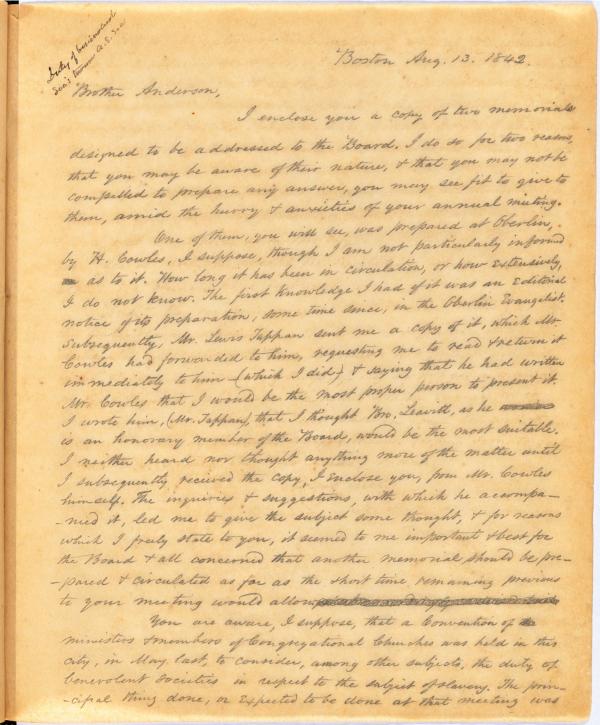 Duty of benevolent
Soc's toward A. S. Soc
Boston Aug. 13. 1842.
Brother Anderson,
I enclose you a copy of two memorials
designed to be addressed to the Board. I do so for two reasons,
that you may be aware of their nature, & that you may not be
compelled to prepare any answer, you may see fit to give to
them, amid the hurry & anxieties of your annual meeting.
One of them, you will see, was prepared at Oberlin,
by H. Cowles, I suppose, though I am not particularly informed
as to it. How long it has been in circulation, or how extensively,
I do not know. The first knowledge I had of it was an Editorial
notice of its preparation, some time since, in the Oberlin Evangelist.
Subsequently, Mr. Lewis Tappan sent me a copy of it, which Mr.
Cowles had forwarded to him, requesting me to read & return it
immediately to him (which I did) & saying that he had written
Mr. Cowles that I would be the most proper person to present it.
I wrote him, (Mr. Tappan), that I thought Bro. Leavitt, as he
is an honorary member of the Board, would be the most suitable.
I neither heard nor thought anything more of the matter until
I subsequently received the copy, I enclose you, from Mr. Cowles
himself. The inquiries & suggestions, with which he accompa-
-nied it, led me to give the subject some thought, & for reasons
which I freely state to you, it seemed to me important & best for
the Board & all concerned that another memorial should be pre-
-pared & circulated as far as the short time, remaining previous
to your meeting would allow
You are aware, I suppose, that a Convention of
ministers & members of Congregational Churches was held in this
city, in May last, to consider, among other subjects, the duty of
benevolent societies in respect to the subject of slavery. The prin-
-cipal thing done, or expected to be done at that meeting was